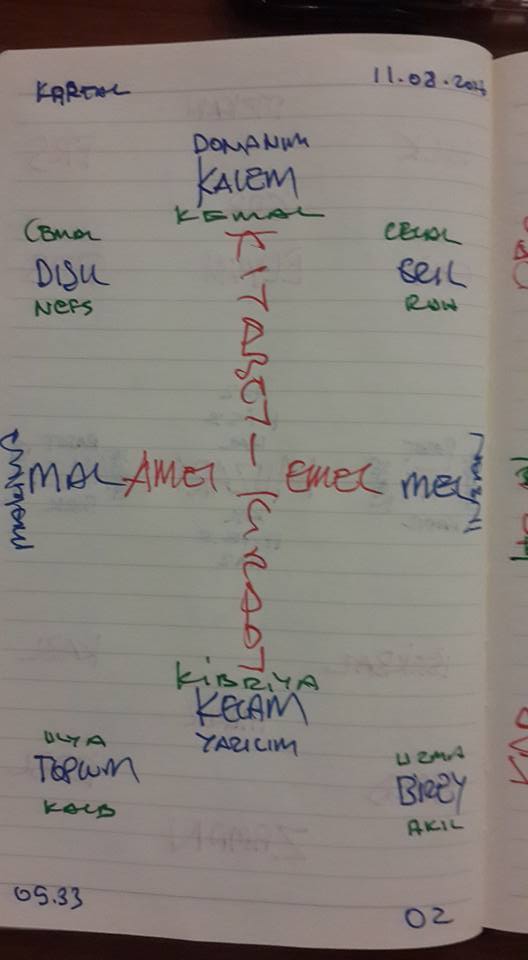 KARTAL
11.08.2026
DONANIM
KALEM
KEMAL
CEMAL
CELAL
DİŞİL
ERİL
NEFS
RUH
KİTABET
MAL AMEL EMEL MEL
KIRAAT
KİBRİYA
KELAM
YAZILIM
ULYA
UZMA
TOPLUM
BİREY
KALB
AKIL
05.33
02